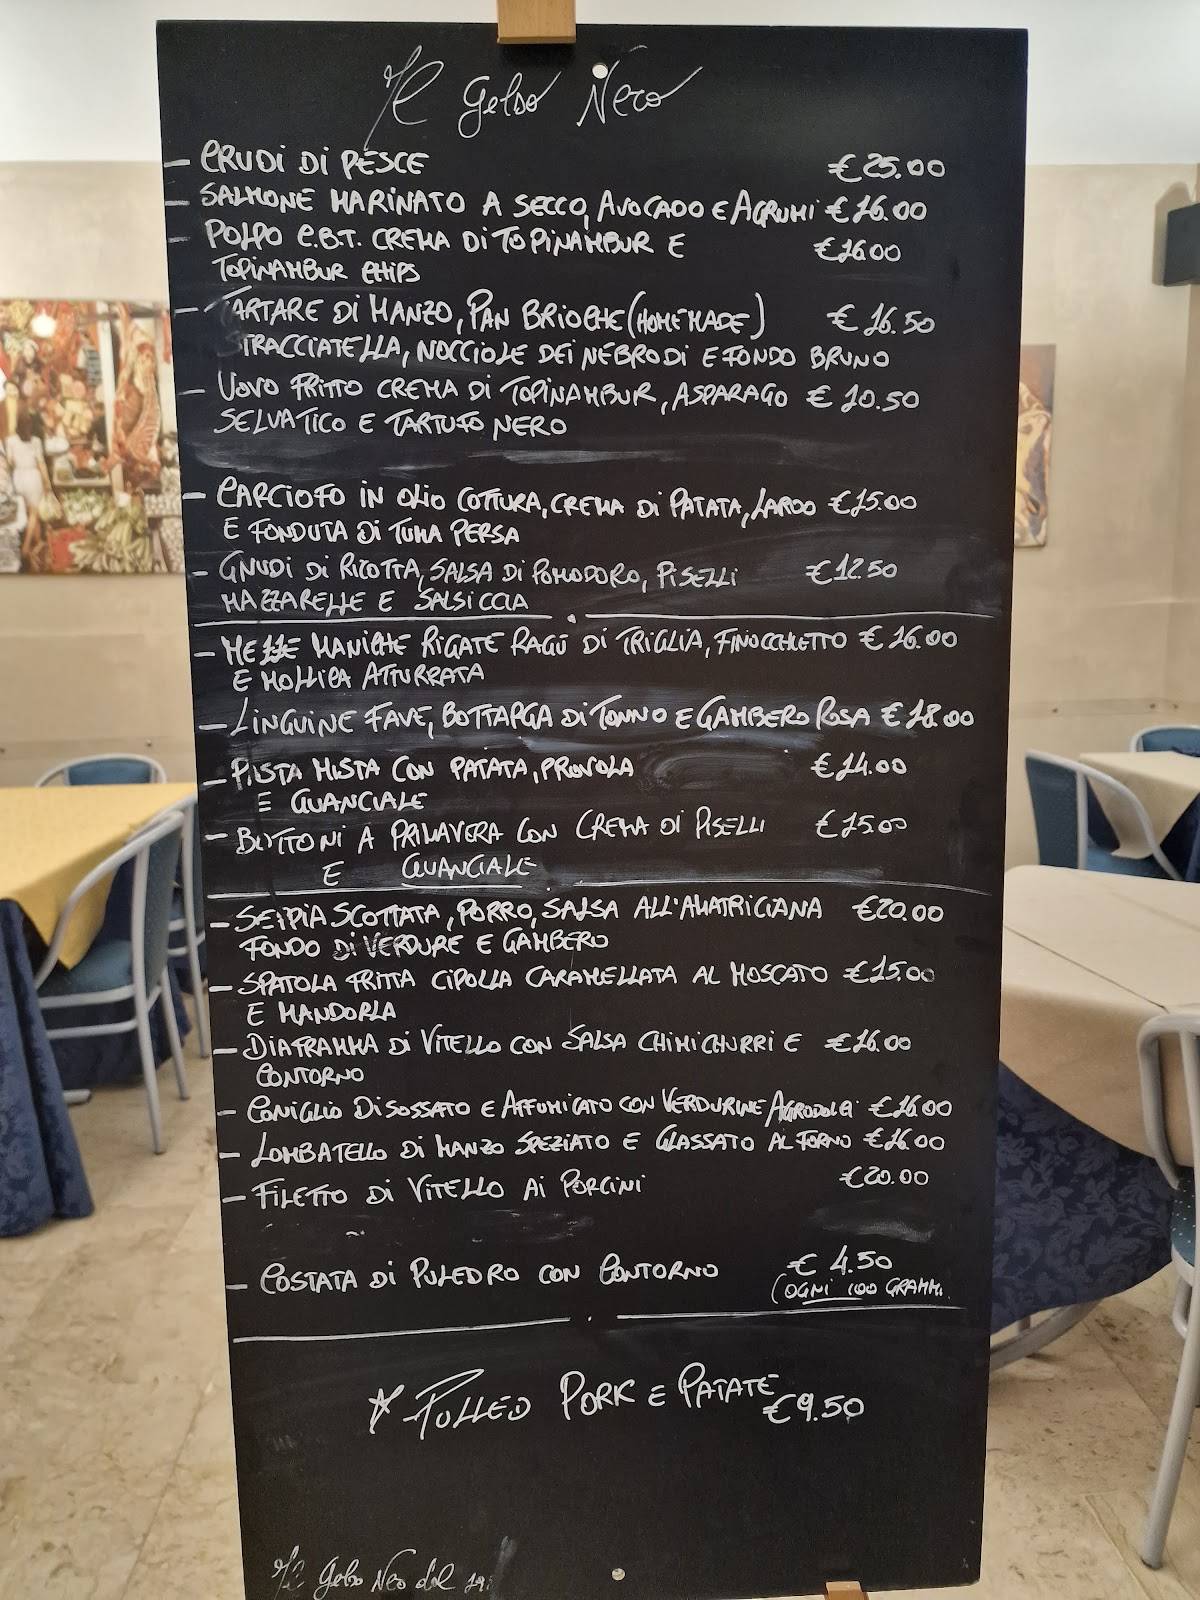 Il Gelso Nero
- CRUDI DI PESCE €25.00
- SALMONE MARINATO A SECCO, AVOCADO E AGRUMI €16.00
- POLPO C.B.T. CREMA DI TOPINAMBUR E €16.00
TOPINAMBUR CHIPS
- TARTARE DI MANZO, PAN BRIOCHE (HOMEMADE) €16.50
STRACCIATELLA, NOCCIOLE DEI NEBRODI E FONDO BRUNO
- UOVO FRITTO CREMA DI TOPINAMBUR, ASPARAGO €10.50
SELVATICO E TARTUFO NERO
- CARCIOFO IN OLIO COTTURA, CREMA DI PATATA, LARDO €15.00
E FONDUTA DI TUMA PERSA
- GNUDI DI RICOTTA, SALSA DI POMODORO, PISELLI €12.50
MAZZARELLE E SALSICCIA
- MEZZE MANICHE RIGATE RAGÙ DI TRIGLIA, FINOCCHIETTO €16.00
E MOLLICA ATTURRATA
- LINGUINE FAVE, BOTTARGA DI TONNO E GAMBERO ROSA €18.00
- PASTA MISTA CON PATATA, PROVOLA €14.00
E GUANCIALE
- BOTTONI A PRIMAVERA CON CREMA DI PISELLI €15.00
E GUANCIALE
- SEPPIA SCOTTATA, PORRO, SALSA ALL'AMATRICIANA €20.00
FONDO DI VERDURE E GAMBERO
- SPATOLA FRITTA CIPOLLA CARAMELLATA AL MOSCATO €15.00
E MANDORLA
- DIAFRAMMA DI VITELLO CON SALSA CHIMICHURRI E €16.00
CONTORNO
- CONIGLIO DISOSSATO E AFFUMICATO CON VERDURINE AGRODOLCI €16.00
- LOMBATELLO DI MANZO SPEZIATO E GLASSATO AL FORNO €16.00
- FILETTO DI VITELLO AI PORCINI €20.00
- COSTATA DI PULEDRO CON CONTORNO € 4.50
(OGNI 100 GRAMMI.
* PULLED PORK E PATATE €9.50
Il Gelso Nero dal